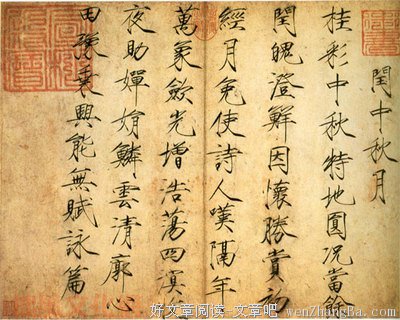 閏中秋月
桂彩中秋特地圓況當餘
閏魄澄鮮因懷勝賞初
經月免使詩人嘆隔年
萬象斂光增浩蕩四溟
夜助嬋娟鱗雲清廓心
田豫乘興能無賦詠篇
好文章阅读-文章吧 wenZhangBa.com